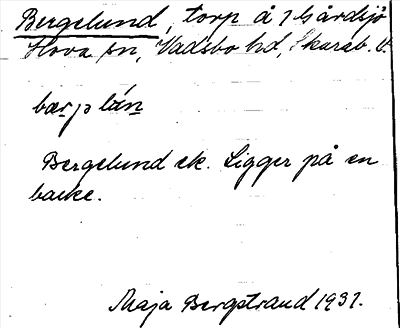 Bergelund, torp å Gårdsjö
Hova sn, Vadsbo hd, Skarab. l.
Bergelund ek. Ligger på en
backe.
Maja Bergstrand 1931.